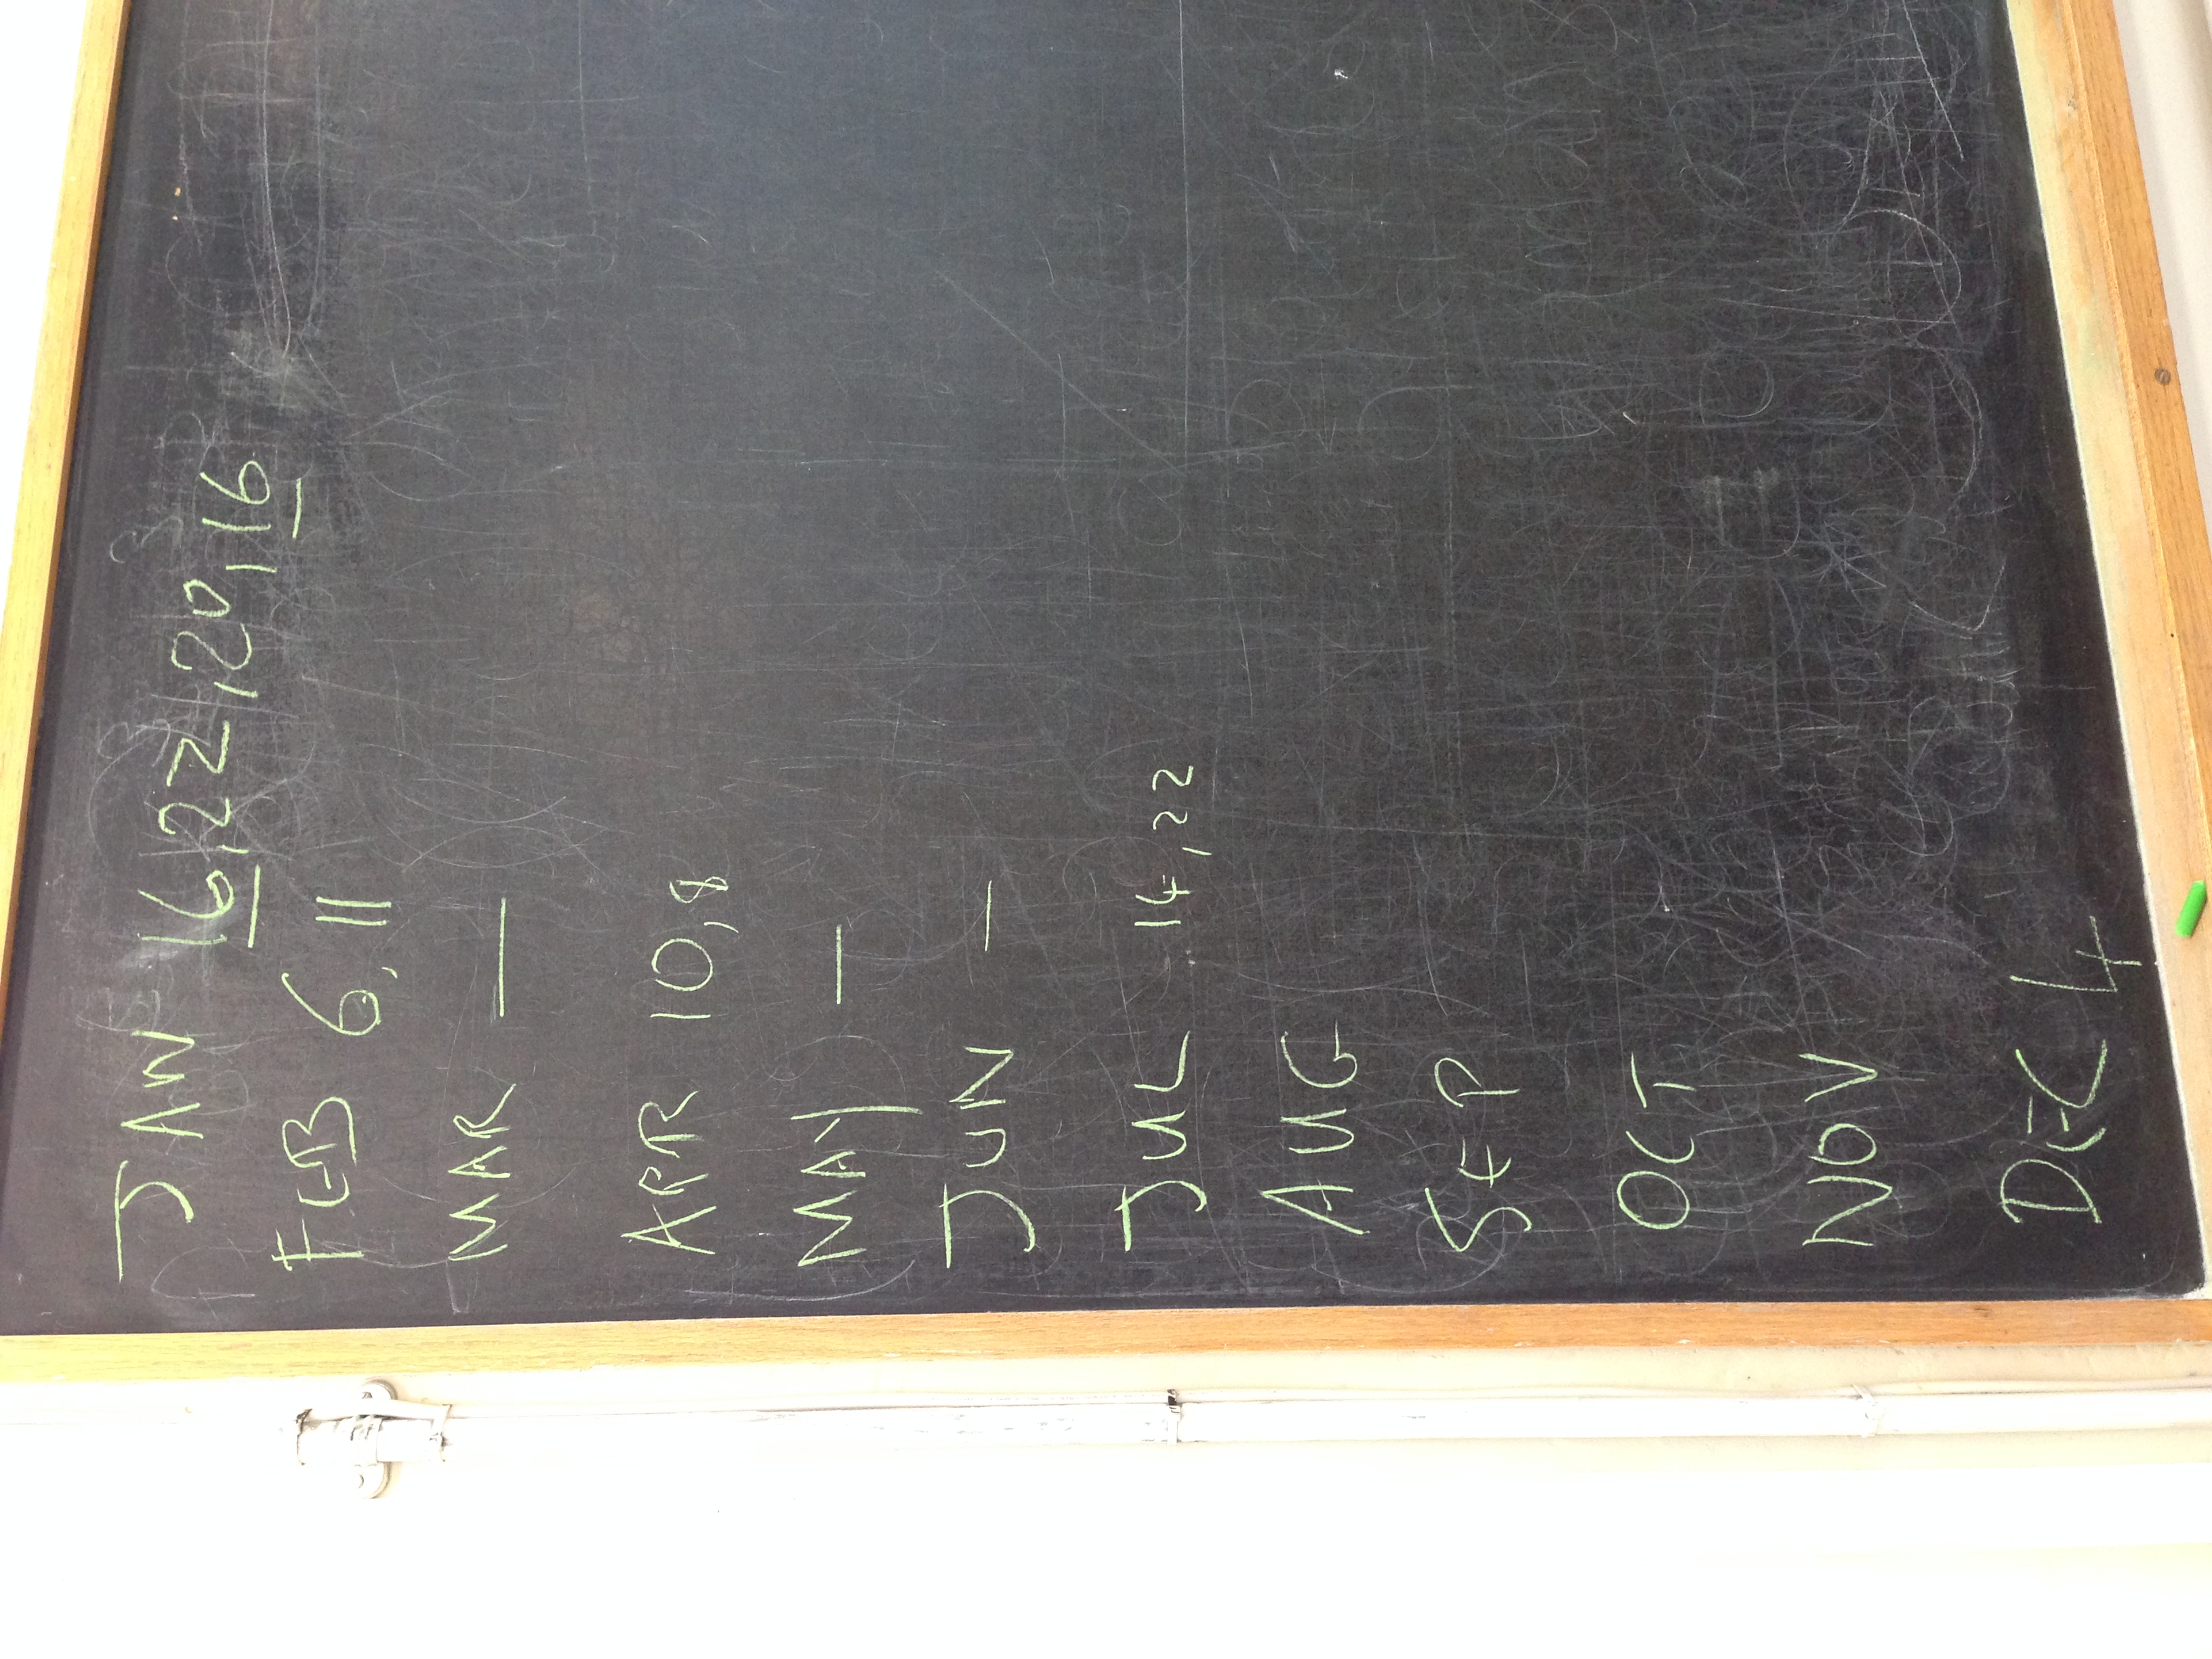 JAN 16, 22, 20, 16
FEB 6, 11
MAR —
APR 10, 8
MAY —
JUN —
JUL 14, 22
AUG
SEP
OCT
NOV
DEC 4